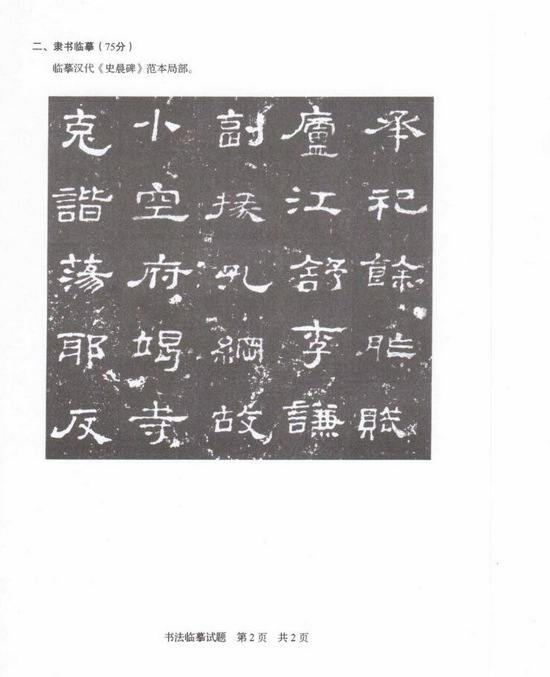 二、隶书临摹（75分）
临摹汉代《史晨碑》范本局部。
承祀餘胙賦
廬江舒李謙
副掾孔綱故
小空府竭寺
克諧蕩耶反
书法临摹试题　第2页　共2页